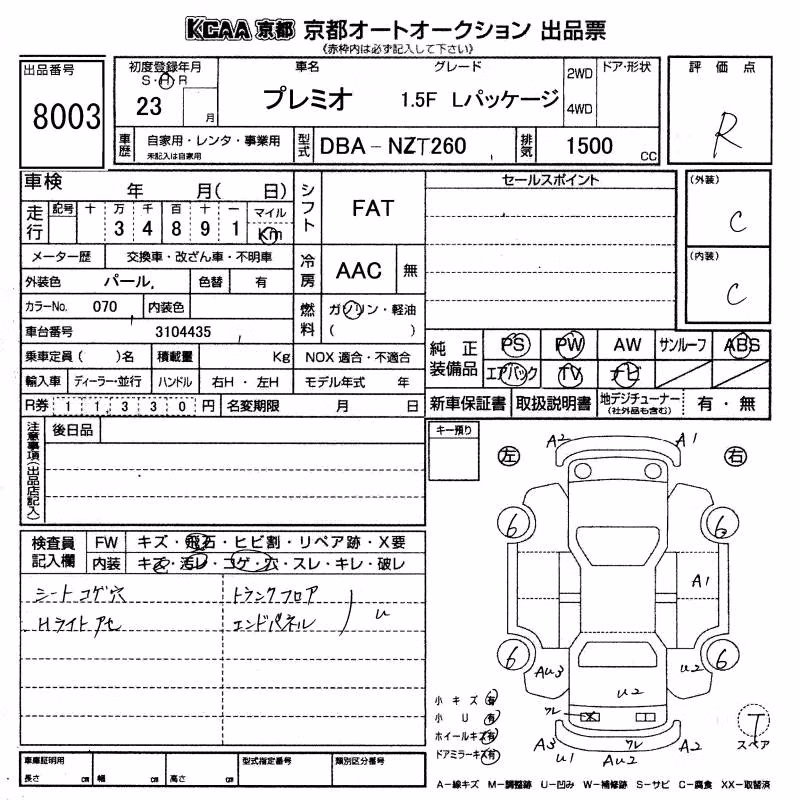 KCAA 京都 京都オートオークション 出品票
《赤枠内は必ず記入して下さい》
出品番号
8003
初度登録年月
S・H・R
23 月
車名
プレミオ
グレード
1.5F Lパッケージ
2WD
4WD
ドア・形状
評価点
R
車歴
自家用・レンタ・事業用
未記入は自家用
型式
DBA-NZT260
排気
1500 CC
車検 年 月( 日)
走行
記号 十 万 千 百 十 一 マイル
3 4 8 9 1 Km
メーター歴 交換車・改ざん車・不明車
外装色 パール 色替 有
カラーNo. 070 内装色
車台番号 3104435
乗車定員( )名 積載量 Kg
輸入車 ディーラー・並行 ハンドル 右H・左H
R券 11,330円 名変期限 月 日
シフト FAT
冷房 AAC 無
燃料 ガソリン・軽油
( )
NOX適合・不適合
モデル年式 年
セールスポイント
(外装)
C
(内装)
C
純正装備品
PS PW AW サンルーフ ABS
エアバック TV ナビ
新車保証書 取扱説明書 地デジチューナー(社外品も含む) 有・無
注意事項(出品店記入)
後日品
キー預り
検査員記入欄
FW キズ・飛石・ヒビ割・リペア跡・X要
内装 キズ・汚レ・コゲ・穴・スレ・キレ・破レ
シートコゲ穴
Hライトアセ
トランクフロア
エンドパネル
U
左 右
A2 A1
6 6
A1
6 6
AU3 U2
U2
ワレ X
A3 U1 ワレ AU2 A2
小キズ 有
小U 有
ホイールキズ 有
ドアミラーキズ 有
T
スペア
車庫証明用
長さ cm 幅 cm 高さ cm
型式指定番号
類別区分番号
A−線キズ M−調整跡 U−凹み W−補修跡 S−サビ C−腐食 XX−取替済